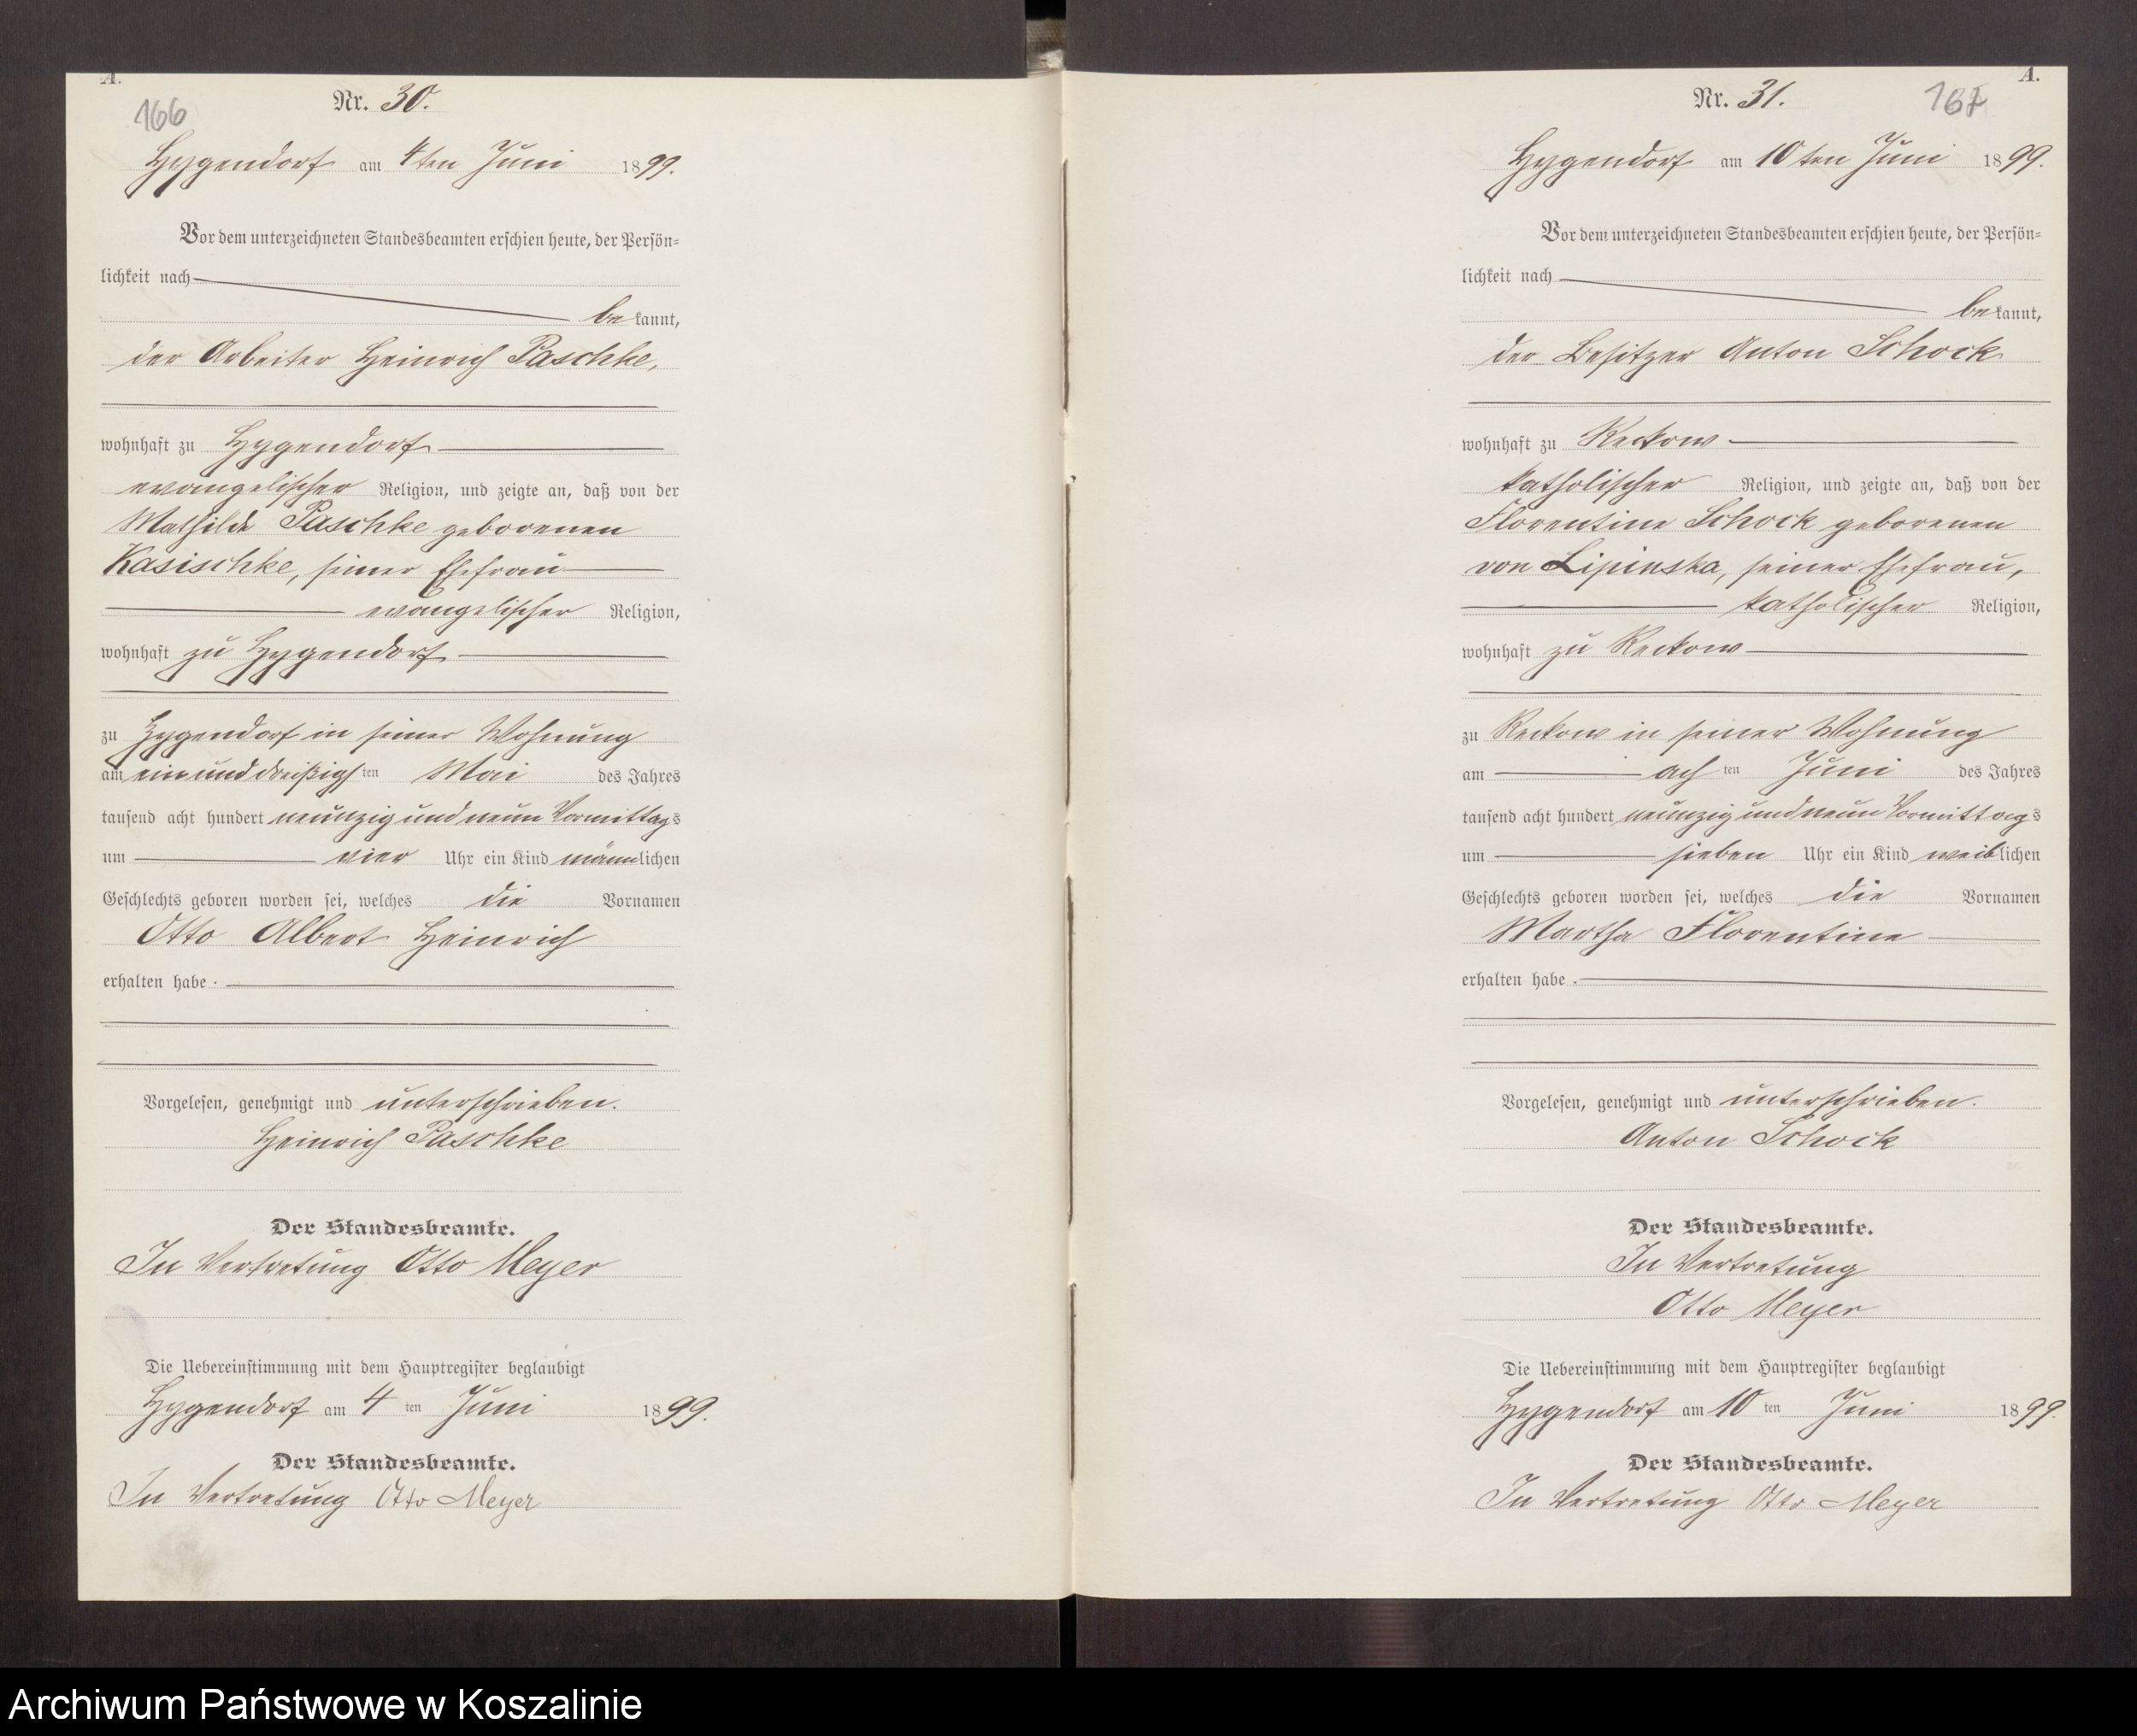 A.
166
Nr. 30.
Hygendorf am 4ten Juni 1899.
Vor dem unterzeichneten Standesbeamten erschien heute, der Persön=
lichkeit nach
bekannt,
der Arbeiter Heinrich Paschke,
wohnhaft zu Hygendorf
evangelischer Religion, und zeigte an, daß von der
Mathilde Paschke geborenen
Kasischke, seiner Ehefrau
evangelischer Religion,
wohnhaft zu Hygendorf
zu Hygendorf in seiner Wohnung
am einunddreißigsten Mai des Jahres
tausend acht hundert neunzig und neun Vormittags
um vier Uhr ein Kind männlichen
Geschlechts geboren worden sei, welches die Vornamen
Otto Albert Heinrich
erhalten habe.
Vorgelesen, genehmigt und unterschrieben.
Heinrich Paschke
Der Standesbeamte.
In Vertretung Otto Meyer
Die Uebereinstimmung mit dem Hauptregister beglaubigt
Hygendorf am 4 ten Juni 1899.
Der Standesbeamte.
In Vertretung Otto Meyer
A.
167
Nr. 31.
Hygendorf am 10ten Juni 1899.
Vor dem unterzeichneten Standesbeamten erschien heute, der Persön=
lichkeit nach
bekannt,
der Besitzer Anton Schock
wohnhaft zu Reckow
katholischer Religion, und zeigte an, daß von der
Florentine Schock geborenen
von Lipinska, seiner Ehefrau,
katholischer Religion,
wohnhaft zu Reckow
zu Reckow in seiner Wohnung
am achten Juni des Jahres
tausend acht hundert neunzig und neun Vormittags
um sieben Uhr ein Kind weiblichen
Geschlechts geboren worden sei, welches die Vornamen
Martha Florentine
erhalten habe.
Vorgelesen, genehmigt und unterschrieben.
Anton Schock
Der Standesbeamte.
In Vertretung
Otto Meyer
Die Uebereinstimmung mit dem Hauptregister beglaubigt
Hygendorf am 10 ten Juni 1899.
Der Standesbeamte.
In Vertretung Otto Meyer
Archiwum Państwowe w Koszalinie